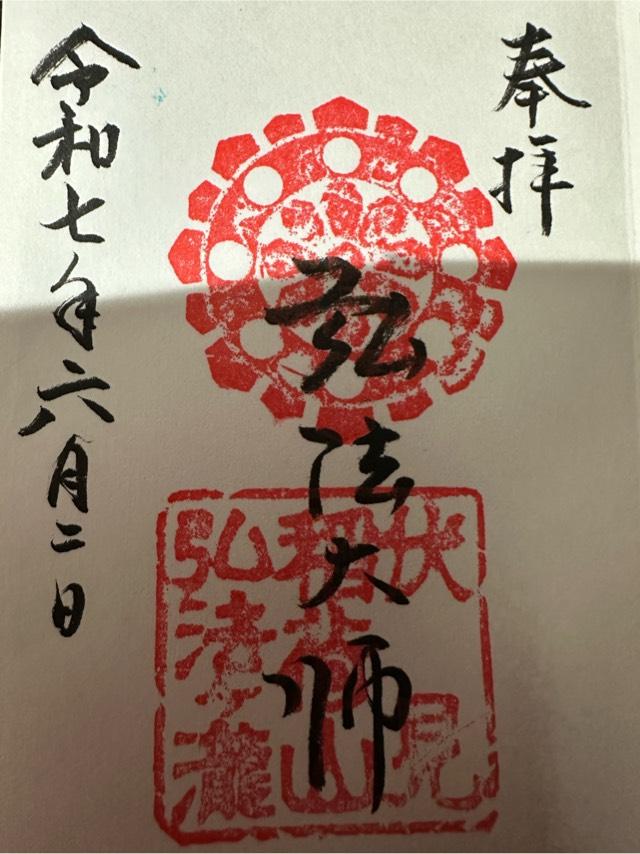 奉拝
弘法大師
伏見
稲荷山
弘法ヶ滝
令和七年六月二日